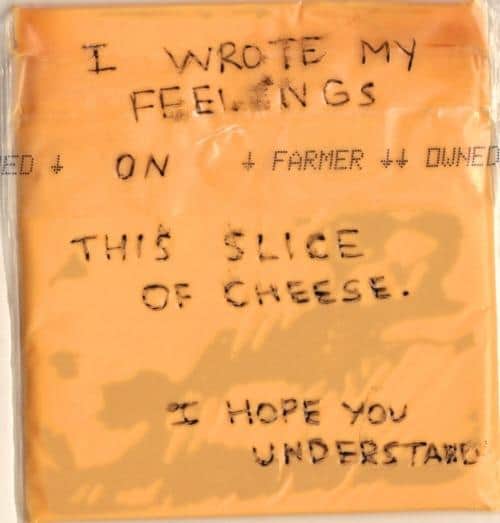 I WROTE MY
FEELINGS
ED ↓ ON ↓ FARMER ↓↓ OWNED
THIS SLICE
OF CHEESE.
I HOPE YOU
UNDERSTAND